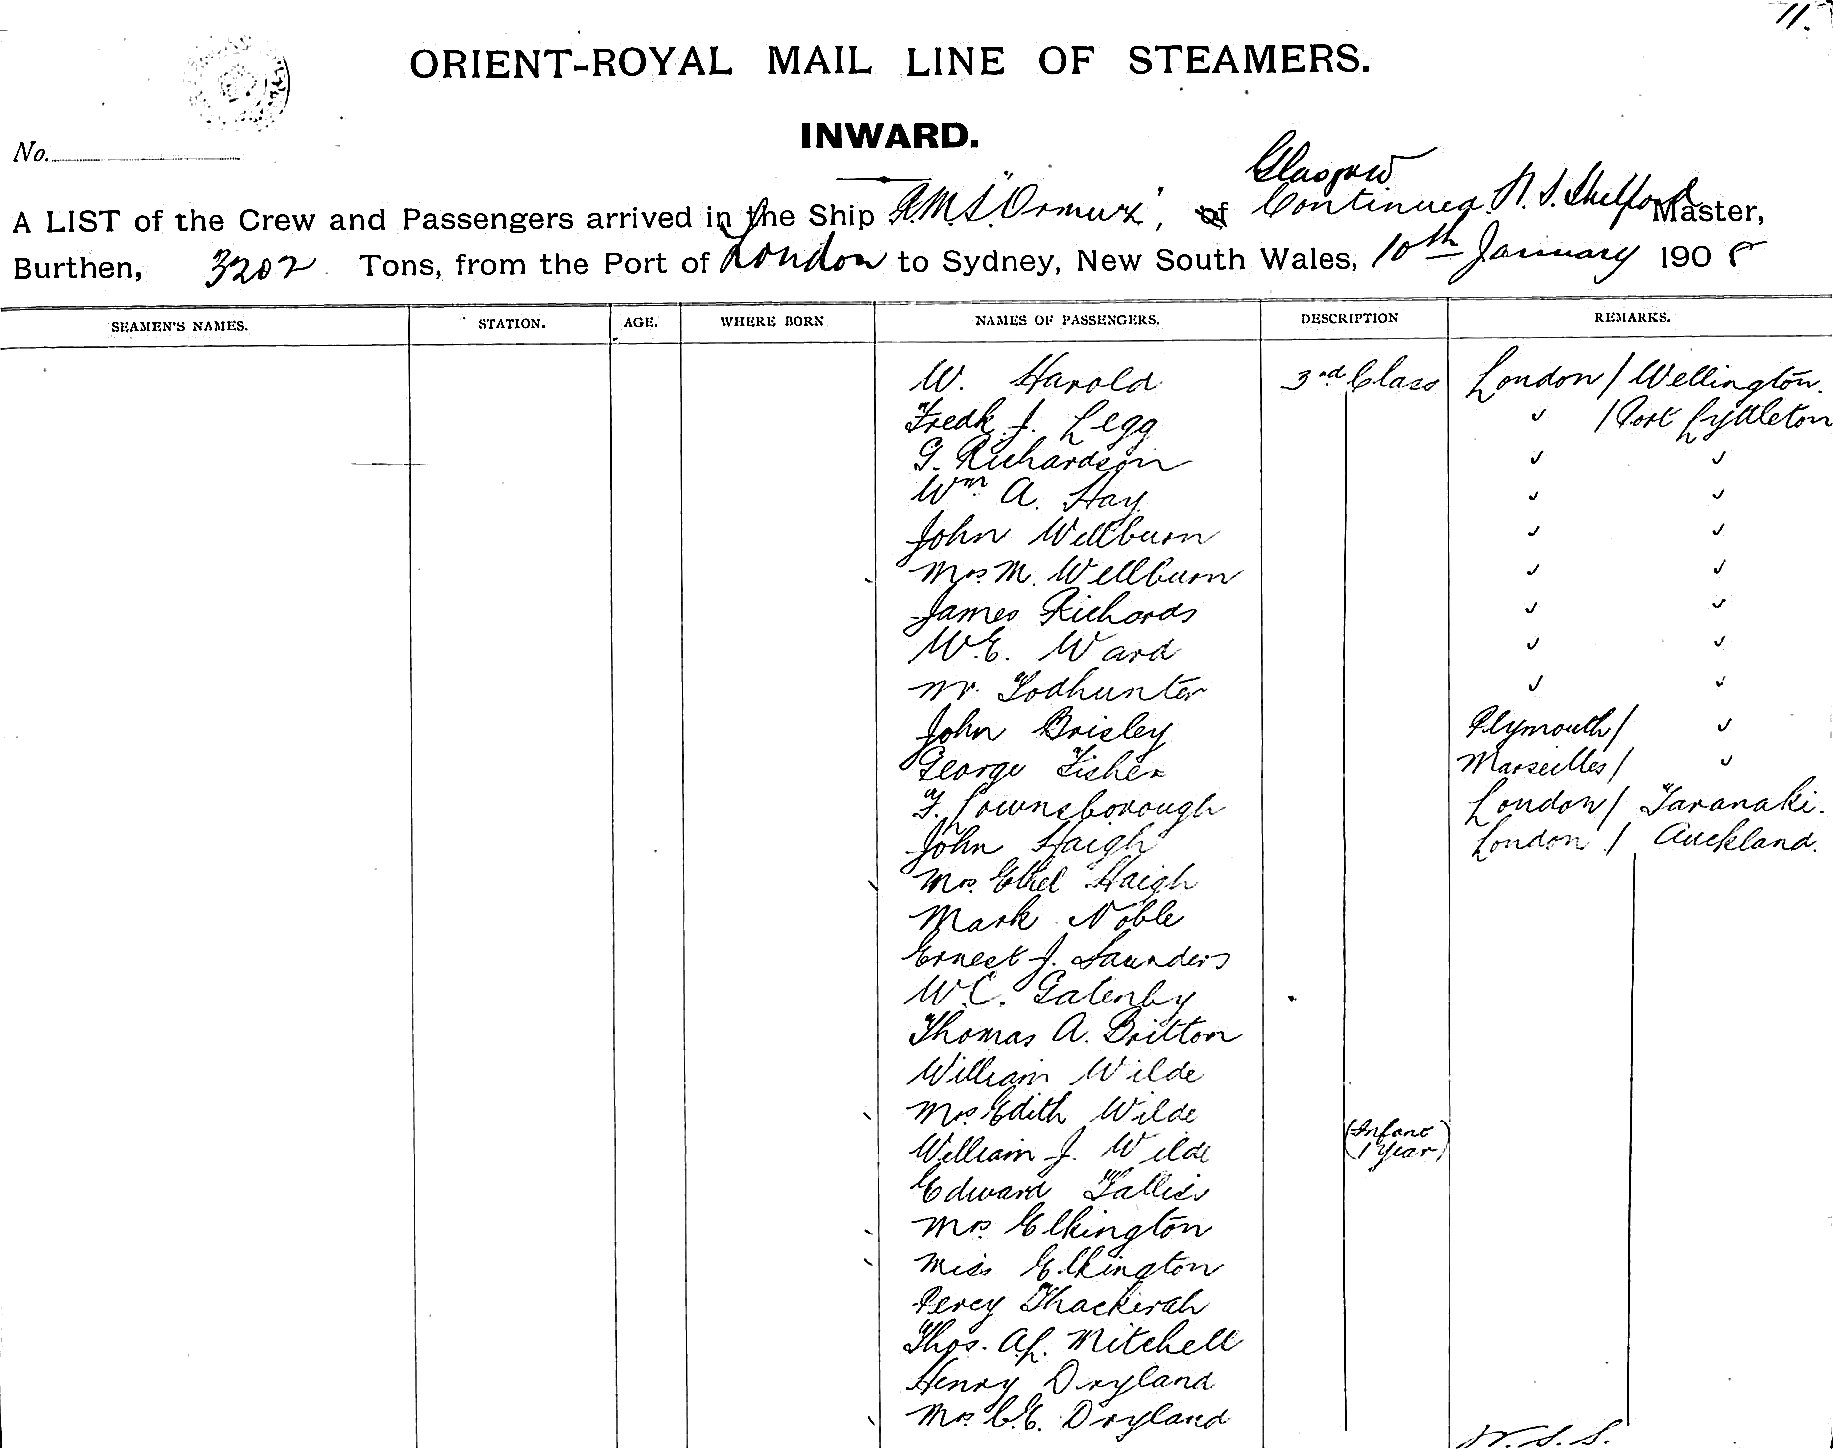 11.
ORIENT-ROYAL MAIL LINE OF STEAMERS.
INWARD.
No.
Glasgow
A LIST of the Crew and Passengers arrived in the Ship R.M.S. "Ormuz", of Continued. N. S. Shelford Master,
Burthen, 3202 Tons, from the Port of London to Sydney, New South Wales, 10th January 1908
SEAMEN'S NAMES. STATION. AGE. WHERE BORN NAMES OF PASSENGERS. DESCRIPTION REMARKS.
W. Harold 3rd Class London / Wellington.
Fredk. J. Legg " / Port Lyttleton
G. Richardson " "
Wm A. Hay " "
John Wellburn " "
Mrs M. Wellburn " "
James Richards " "
W.E. Ward " "
Todhunter " "
John Brisley Plymouth / "
George Fisher Marseilles / "
F. Lownsborough London / Taranaki.
John Haigh London / Auckland.
Mrs. Ethel Haigh
Mark Noble
Ernest J. Saunders
W.C. Gatenby
Thomas A. Britton
William Wilde
Mrs Edith Wilde
William J. Wilde (Infant 1 Year)
Edward Tallis
Mrs. Elkington
Miss Elkington
Percy Thackerah
Thos. A. Mitchell
Henry Dryland
Mrs. C.E. Dryland
N.S.S.